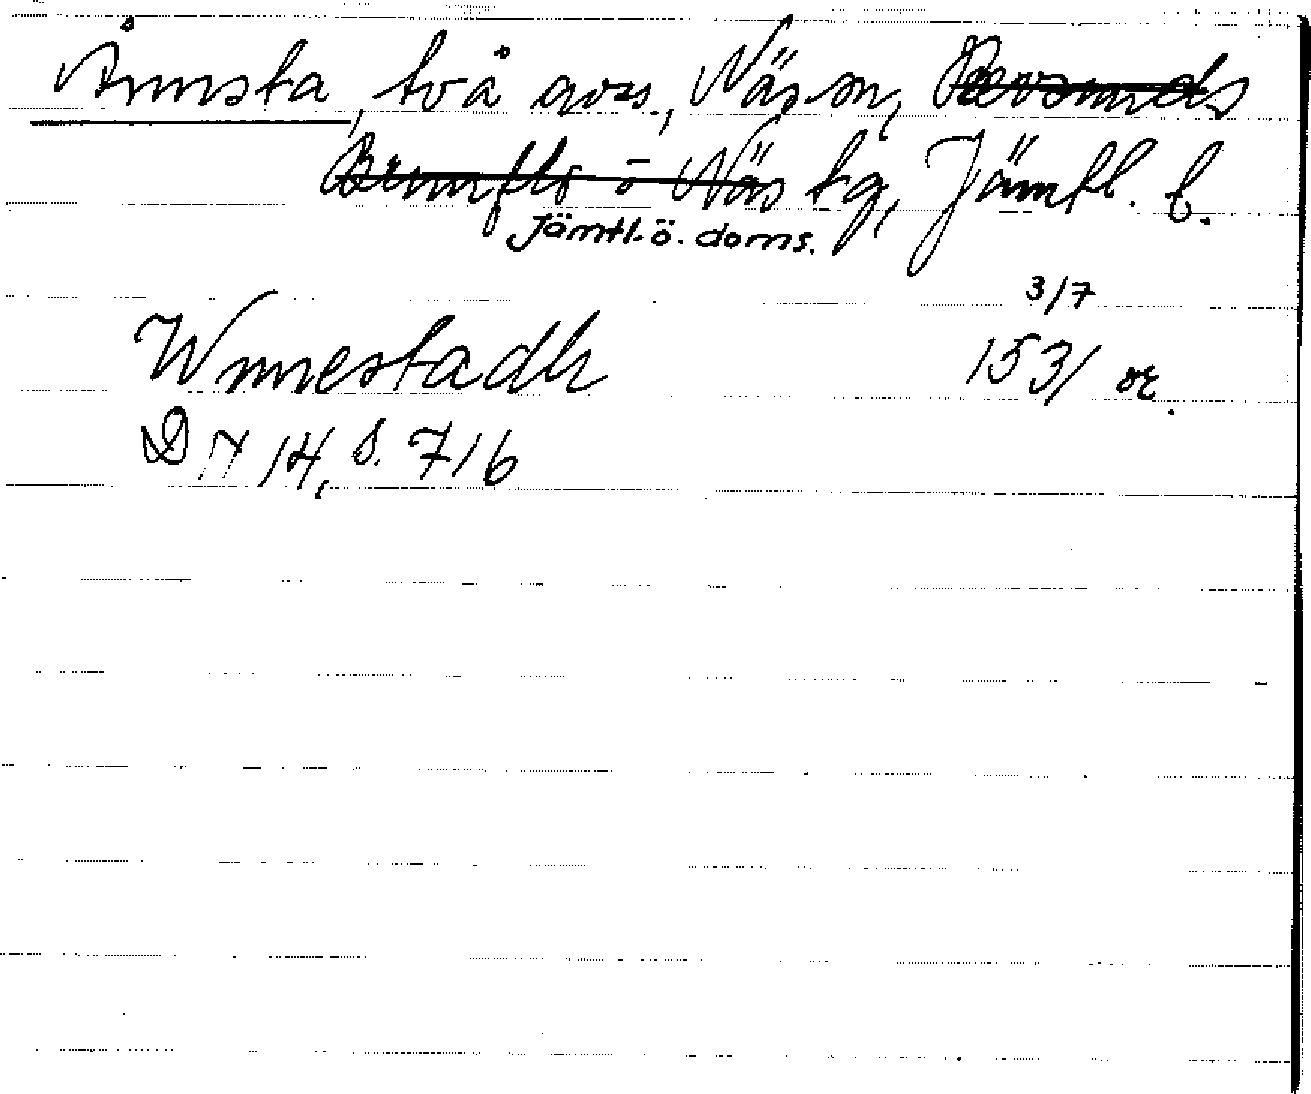 Ånnsta, två avs, Näs sn, Revsunds
Brunflo o Näs tg, Jämtl. l.
Jämtl. ö. doms.
3/7
Wnnestadh 1531 or.
D N 14, s. 716